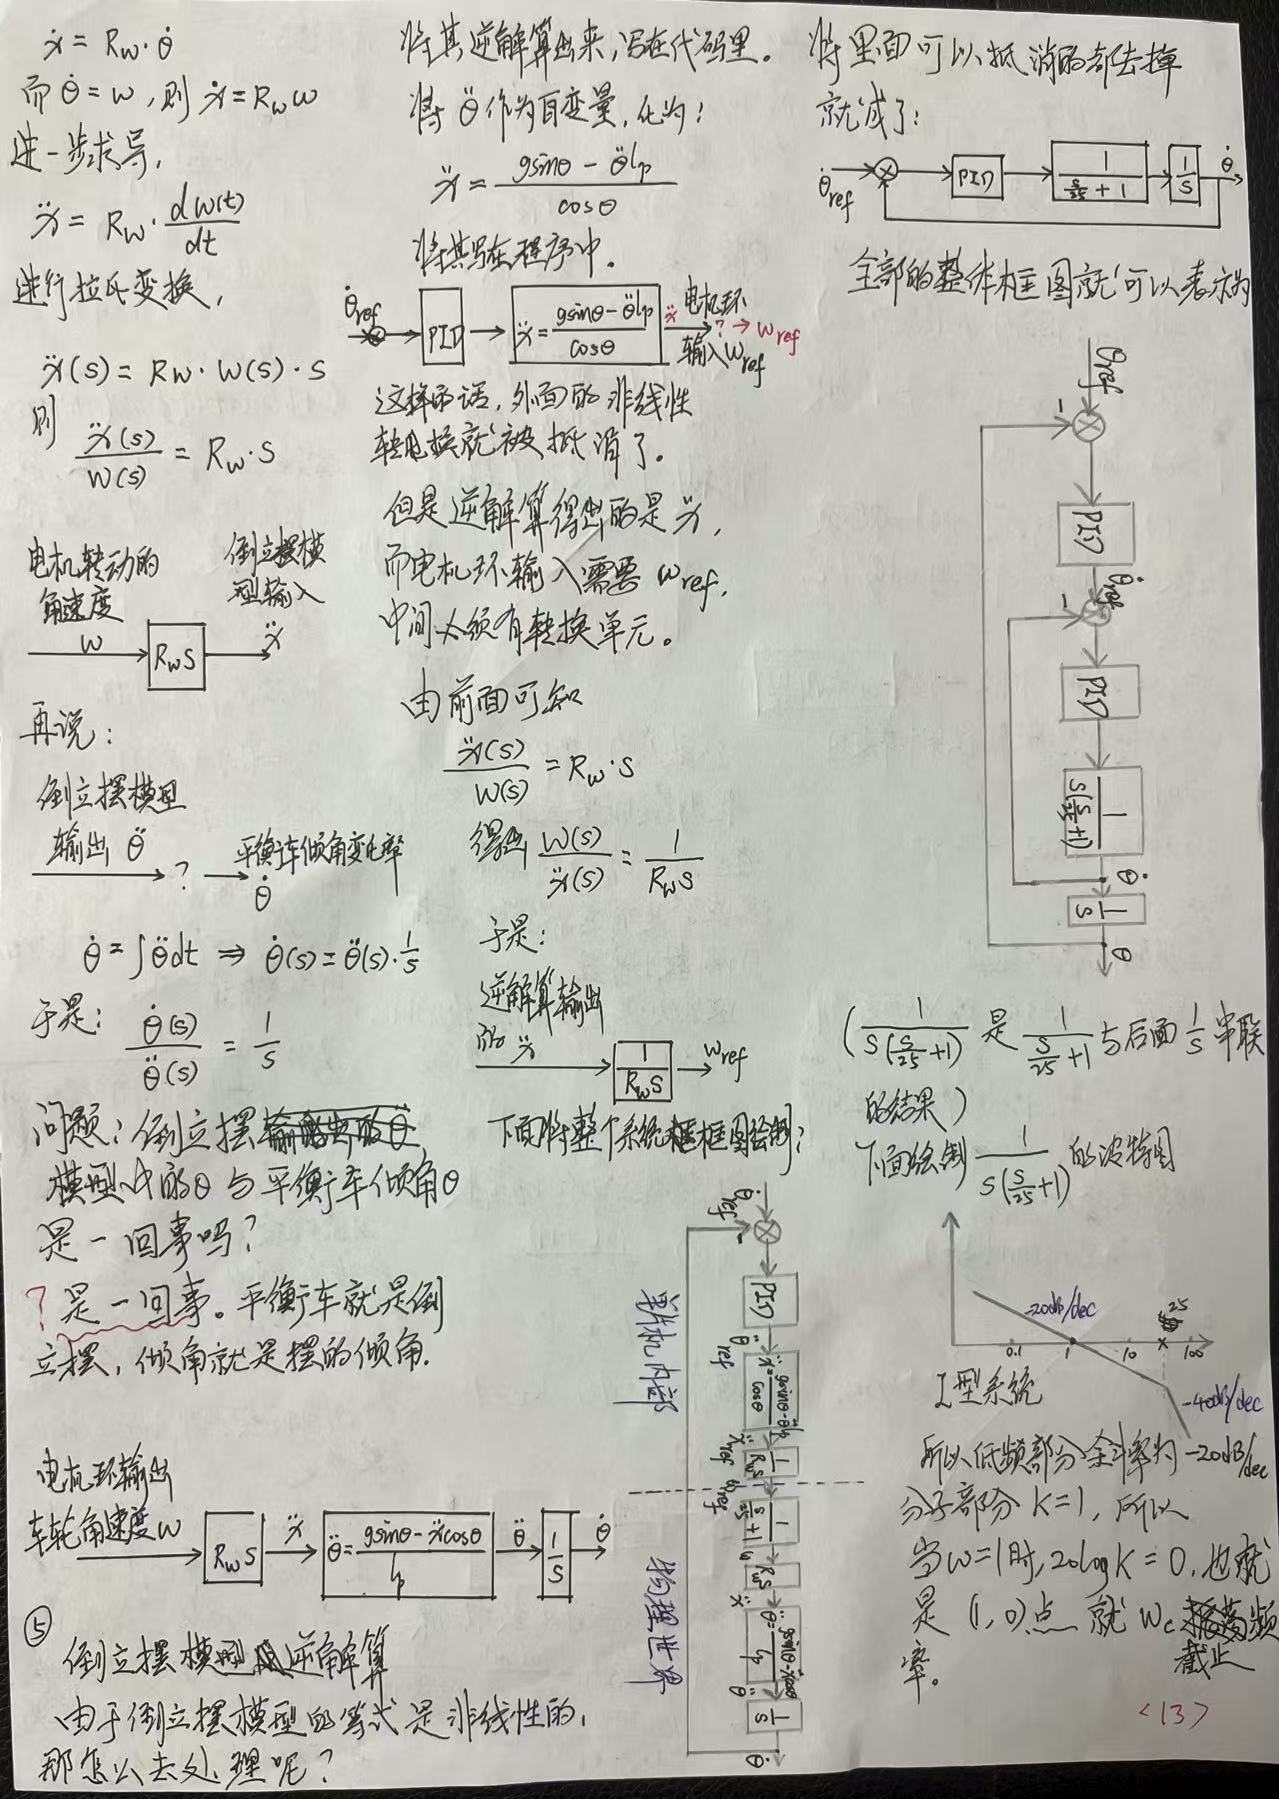 ẋ = R_w·θ̇
而 θ̇ = w, 则 ẋ = R_w w
进一步求导,
ẍ = R_w · dw(t)/dt
进行拉氏变换,
ẍ(s) = R_w · w(s) · s
则
ẍ(s)/w(s) = R_w·s
电机转动的
角速度
w
R_w s
ẍ
倒立摆模
型输入
再说:
倒立摆模型
输出 θ̈
? → θ̇
平衡车倾角变化率
θ̇ = ∫θ̈dt ⇒ θ̇(s) = θ̈(s)·1/s
于是: θ̇(s)/θ̈(s) = 1/s
问题: 倒立摆
模型中的θ 与平衡车倾角θ
是一回事吗?
? 是一回事。平衡车就是倒
立摆, 倾角就是摆的倾角.
电机环输出
车轮角速度w
R_w s
ẍ
θ̈ = (gsinθ - ẍcosθ)/l_p
θ̈
1/s
θ̇
⑤
倒立摆模型 逆解算
由于倒立摆模型的等式是非线性的,
那怎么去处理呢?
将其逆解算出来, 写在代码里。
将 θ̈ 作为自变量, 化为:
ẍ = (gsinθ - θ̈l_p)/cosθ
将其写在程序中。
θ̇ref
PID
ẍ = (gsinθ - θ̈l_p)/cosθ
ẍ 电机环
? → w_ref
输入w_ref
这样的话, 外面的非线性
转换就被抵消了。
但是逆解算得出的是 ẍ,
而电机环输入需要 w_ref,
中间必须有转换单元。
由前面可知
ẍ(s)/w(s) = R_w·s
得出 w(s)/ẍ(s) = 1/(R_w s)
于是:
逆解算输出
的 ẍ
1/(R_w s)
w_ref
下面将整个系统框图绘制:
θ̇ref
-
PID
θ̈ref
ẍ = (gsinθ - θ̈l_p)/cosθ
ẍref
1/(R_w s)
w_ref
1/(s/25 + 1)
w
R_w s
ẍ
θ̈ = (gsinθ - ẍcosθ)/l_p
θ̈
1/s
θ̇
单片机内部
物理世界
将里面可以抵消的都去掉
就成了:
θ̇ref
PID
1/(s/25 + 1)
1/s
θ̇
全部的整体框图就可以表示为
θref
-
PID
θ̇ref
-
PID
1/(s(s/25+1))
θ̇
1/s
θ
(1/(s(s/25+1)) 是 1/(s/25+1) 与后面 1/s 串联
的结果)
下面绘制 1/(s(s/25+1)) 的波特图
-20dB/dec
25
0.1 1 10 100
I型系统
-40dB/dec
所以低频部分斜率为 -20dB/dec
分子部分 K=1, 所以
当w=1时, 20logK = 0, 也就
是 (1, 0)点 就 w_c 频
率。
截止
<13>